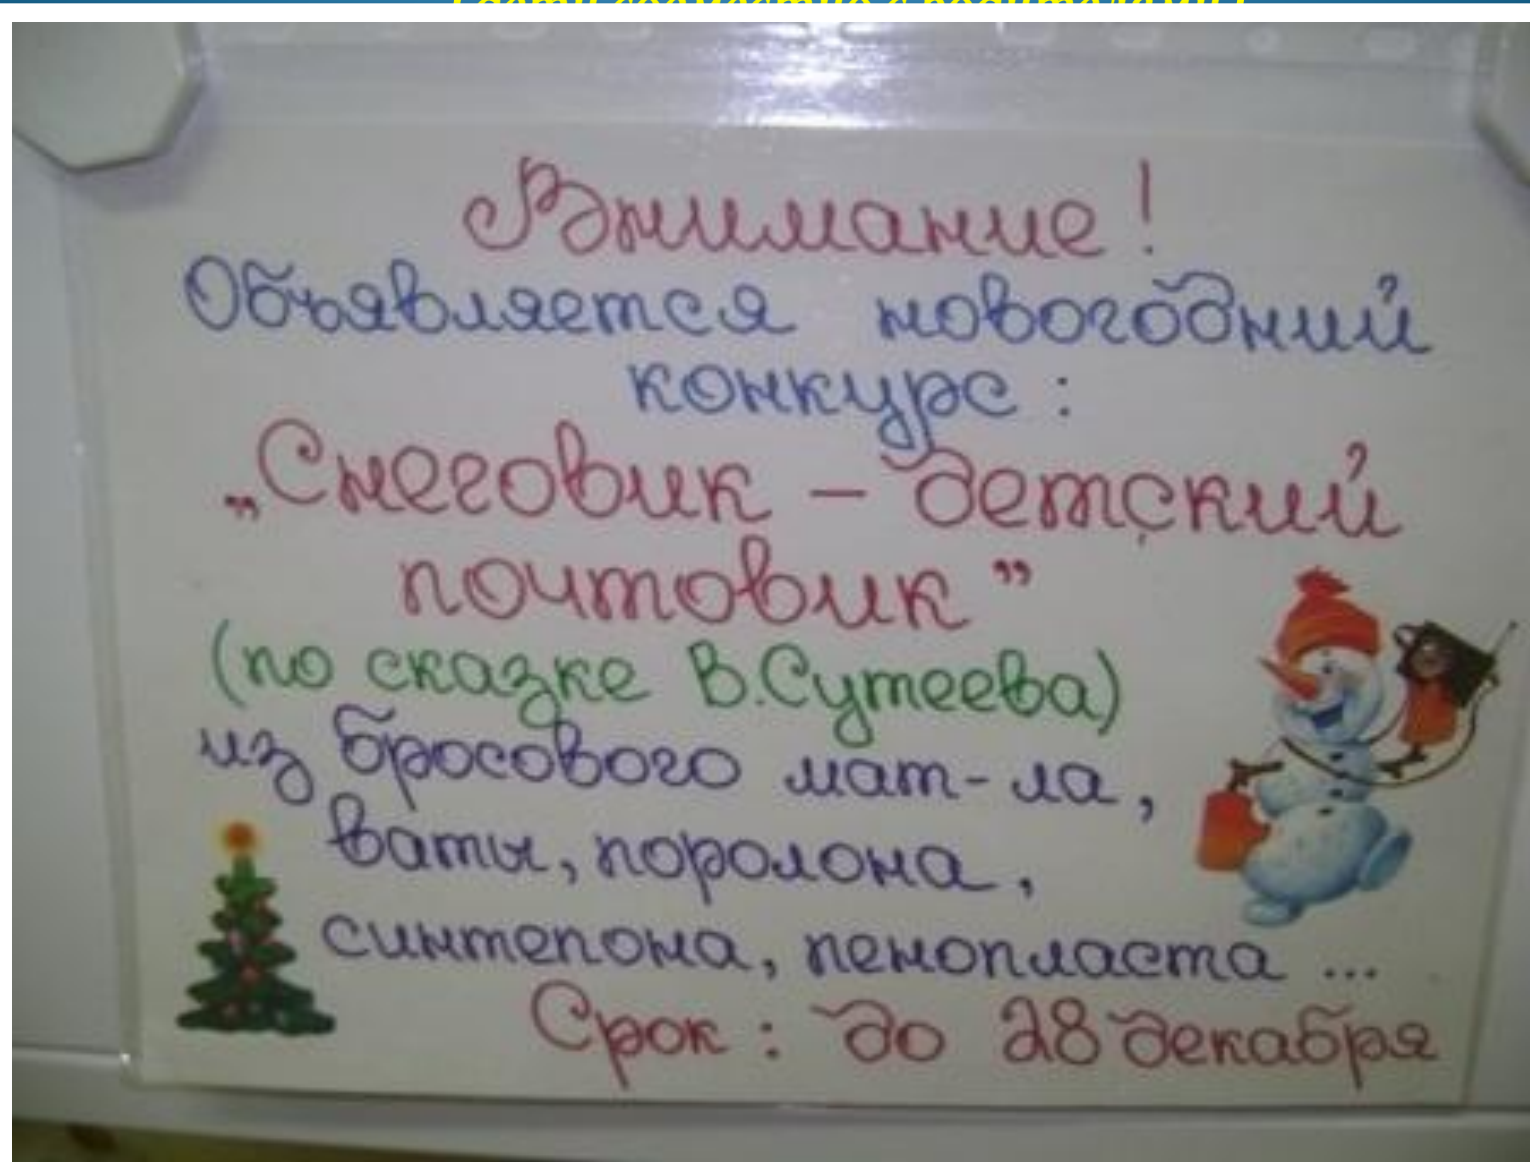 Внимание!
Объявляется новогодний
конкурс:
„Снеговик – детский
почтовик”
(по сказке В.Сутеева)
из бросового мат-ла,
ваты, поролона,
синтепона, пенопласта ...
Срок: до 28 декабря